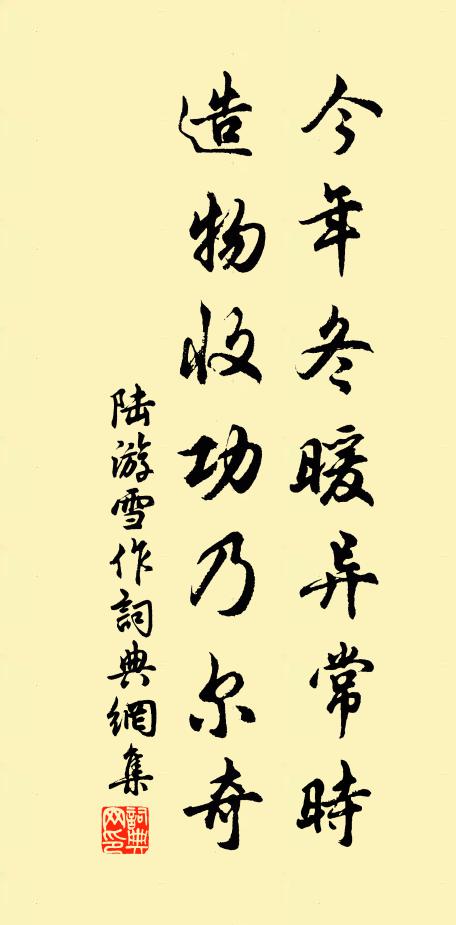 今年冬暖异常時
造物收功乃尔奇
陆游雪作詞典網集
詞典网印